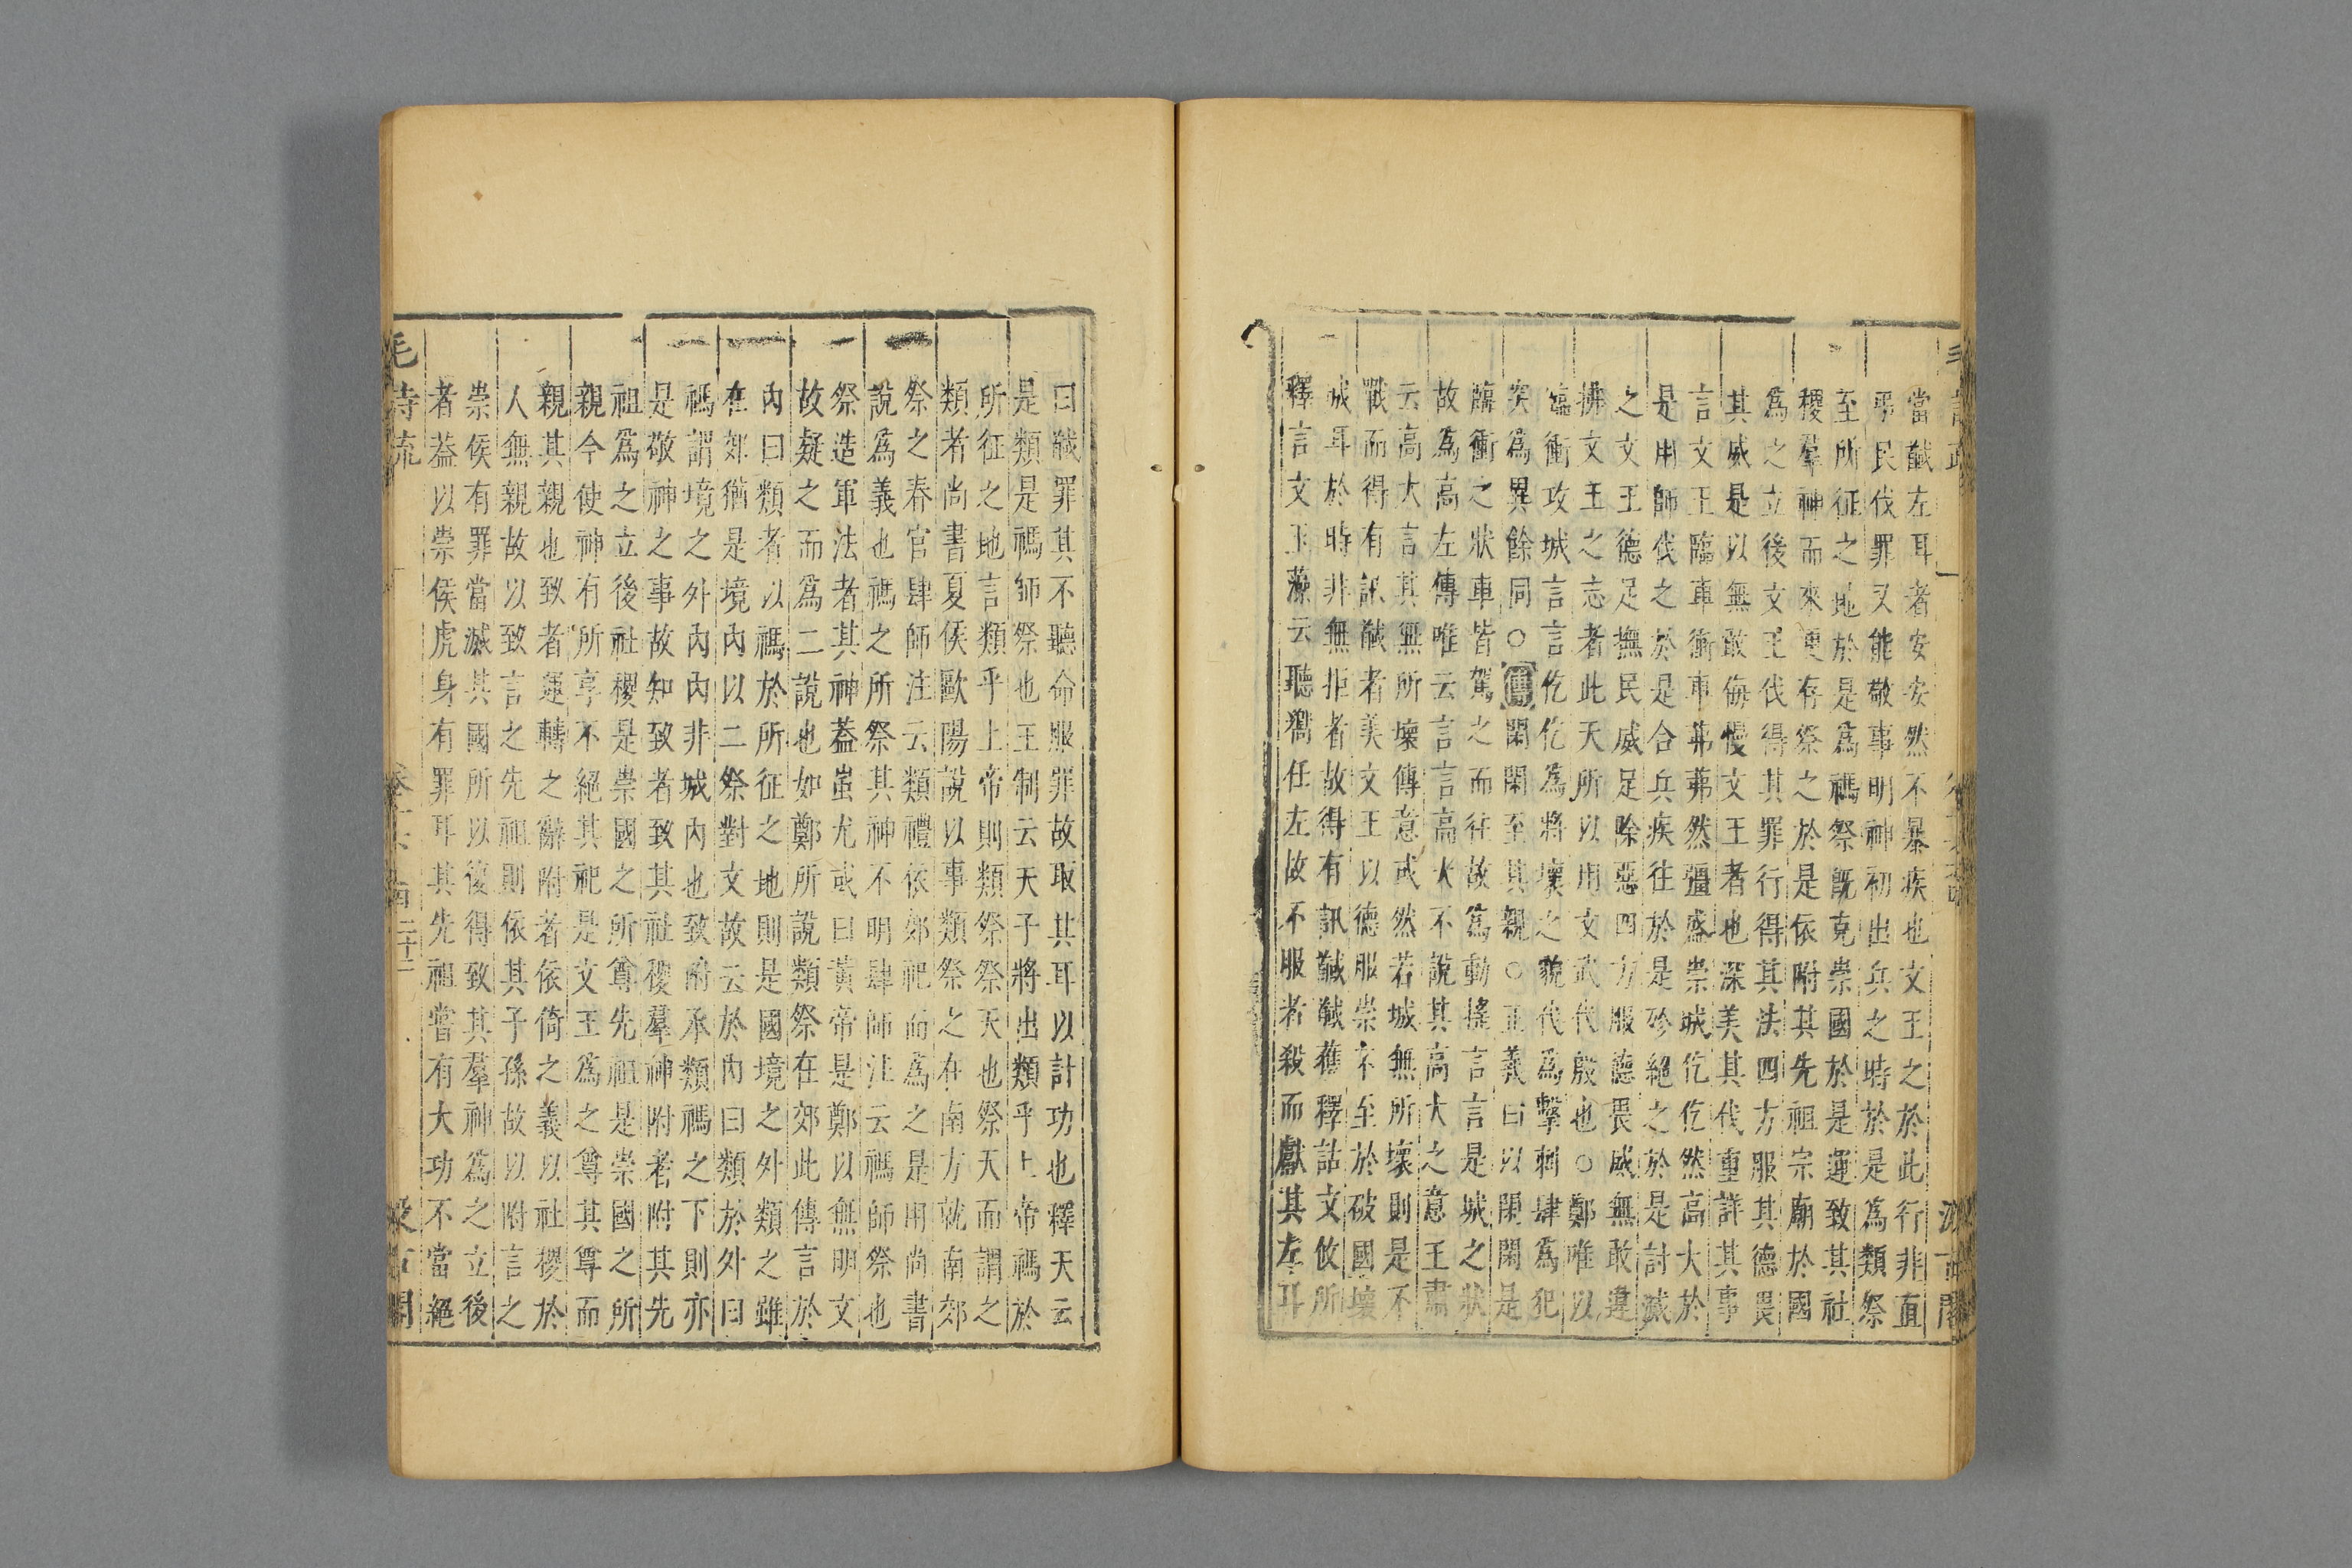 當馘左耳者安安然不暴疾也文王之於此行非直
弔民伐罪又能敬事明神初出兵之時於是爲類祭
至所征之地於是爲禡祭旣克崇國於是運致其社
稷羣神而來更存祭之於是依附其先祖宗廟於國
爲之立後文王伐得其罪行得其法四方服其德畏
其威是以無敢侮慢文王者也深美其伐重詳其事
言文王臨車衝車茀茀然彊盛崇城仡仡然高大於
是用師伐之於是合兵疾往於是殄絕之於是討滅
之文王德足撫民威足除惡四方服德畏威無敢違
拂文王之志者此天所以用文武代殷也○鄭唯以
臨衝攻城言言仡仡爲將壞之貌伐爲擊刺肆爲犯
突爲異餘同○傳閑閑至其親○正義曰以閑閑是
臨衝之狀車皆駕之而往故爲動搖言言是城之狀
故爲高左傳唯云言言高大不說其高大之意王肅
云高大言其無所壞傳意或然若城無所壞則是不
戰而得有訊馘者美文王以德服崇不至於破國壞
城耳於時非無拒者故得有訊馘馘獲釋詁文攸所
釋言文玉藻云聽嚮任左故不服者殺而獻其左耳
曰馘罪其不聽命服罪故取其耳以計功也釋天云
是類是禡師祭也王制云天子將出類乎上帝禡於
所征之地言類乎上帝則類祭祭天也祭天而謂之
類者尚書夏侯歐陽說以事類祭之在南方就南郊
祭之春官肆師注云類禮依郊祀而爲之是用尚書
說爲義也禡之所祭其神不明肆師注云禡師祭也
祭造軍法者其神蓋蚩尤或曰黃帝是鄭以無明文
故疑之而爲二說也如鄭所說類祭在郊此傳言於
內曰類者以禡於所征之地則是國境之外類之雖
在郊猶是境內以二祭對文故云於內曰類於外曰
禡謂境之外內內非城內也致附承類禡之下則亦
是敬神之事故知致者致其社稷羣神附者附其先
祖爲之立後社稷是崇國之所尊先祖是崇國之所
親今使神有所享不絕其祀是文王爲之尊其尊而
親其親也致者運轉之辭附者依倚之義以社稷於
人無親故以致言之先祖則依其子孫故以附言之
崇侯有罪當滅其國所以復得致其羣神爲之立後
者蓋以崇侯虎身有罪耳其先祖嘗有大功不當絕
毛詩疏